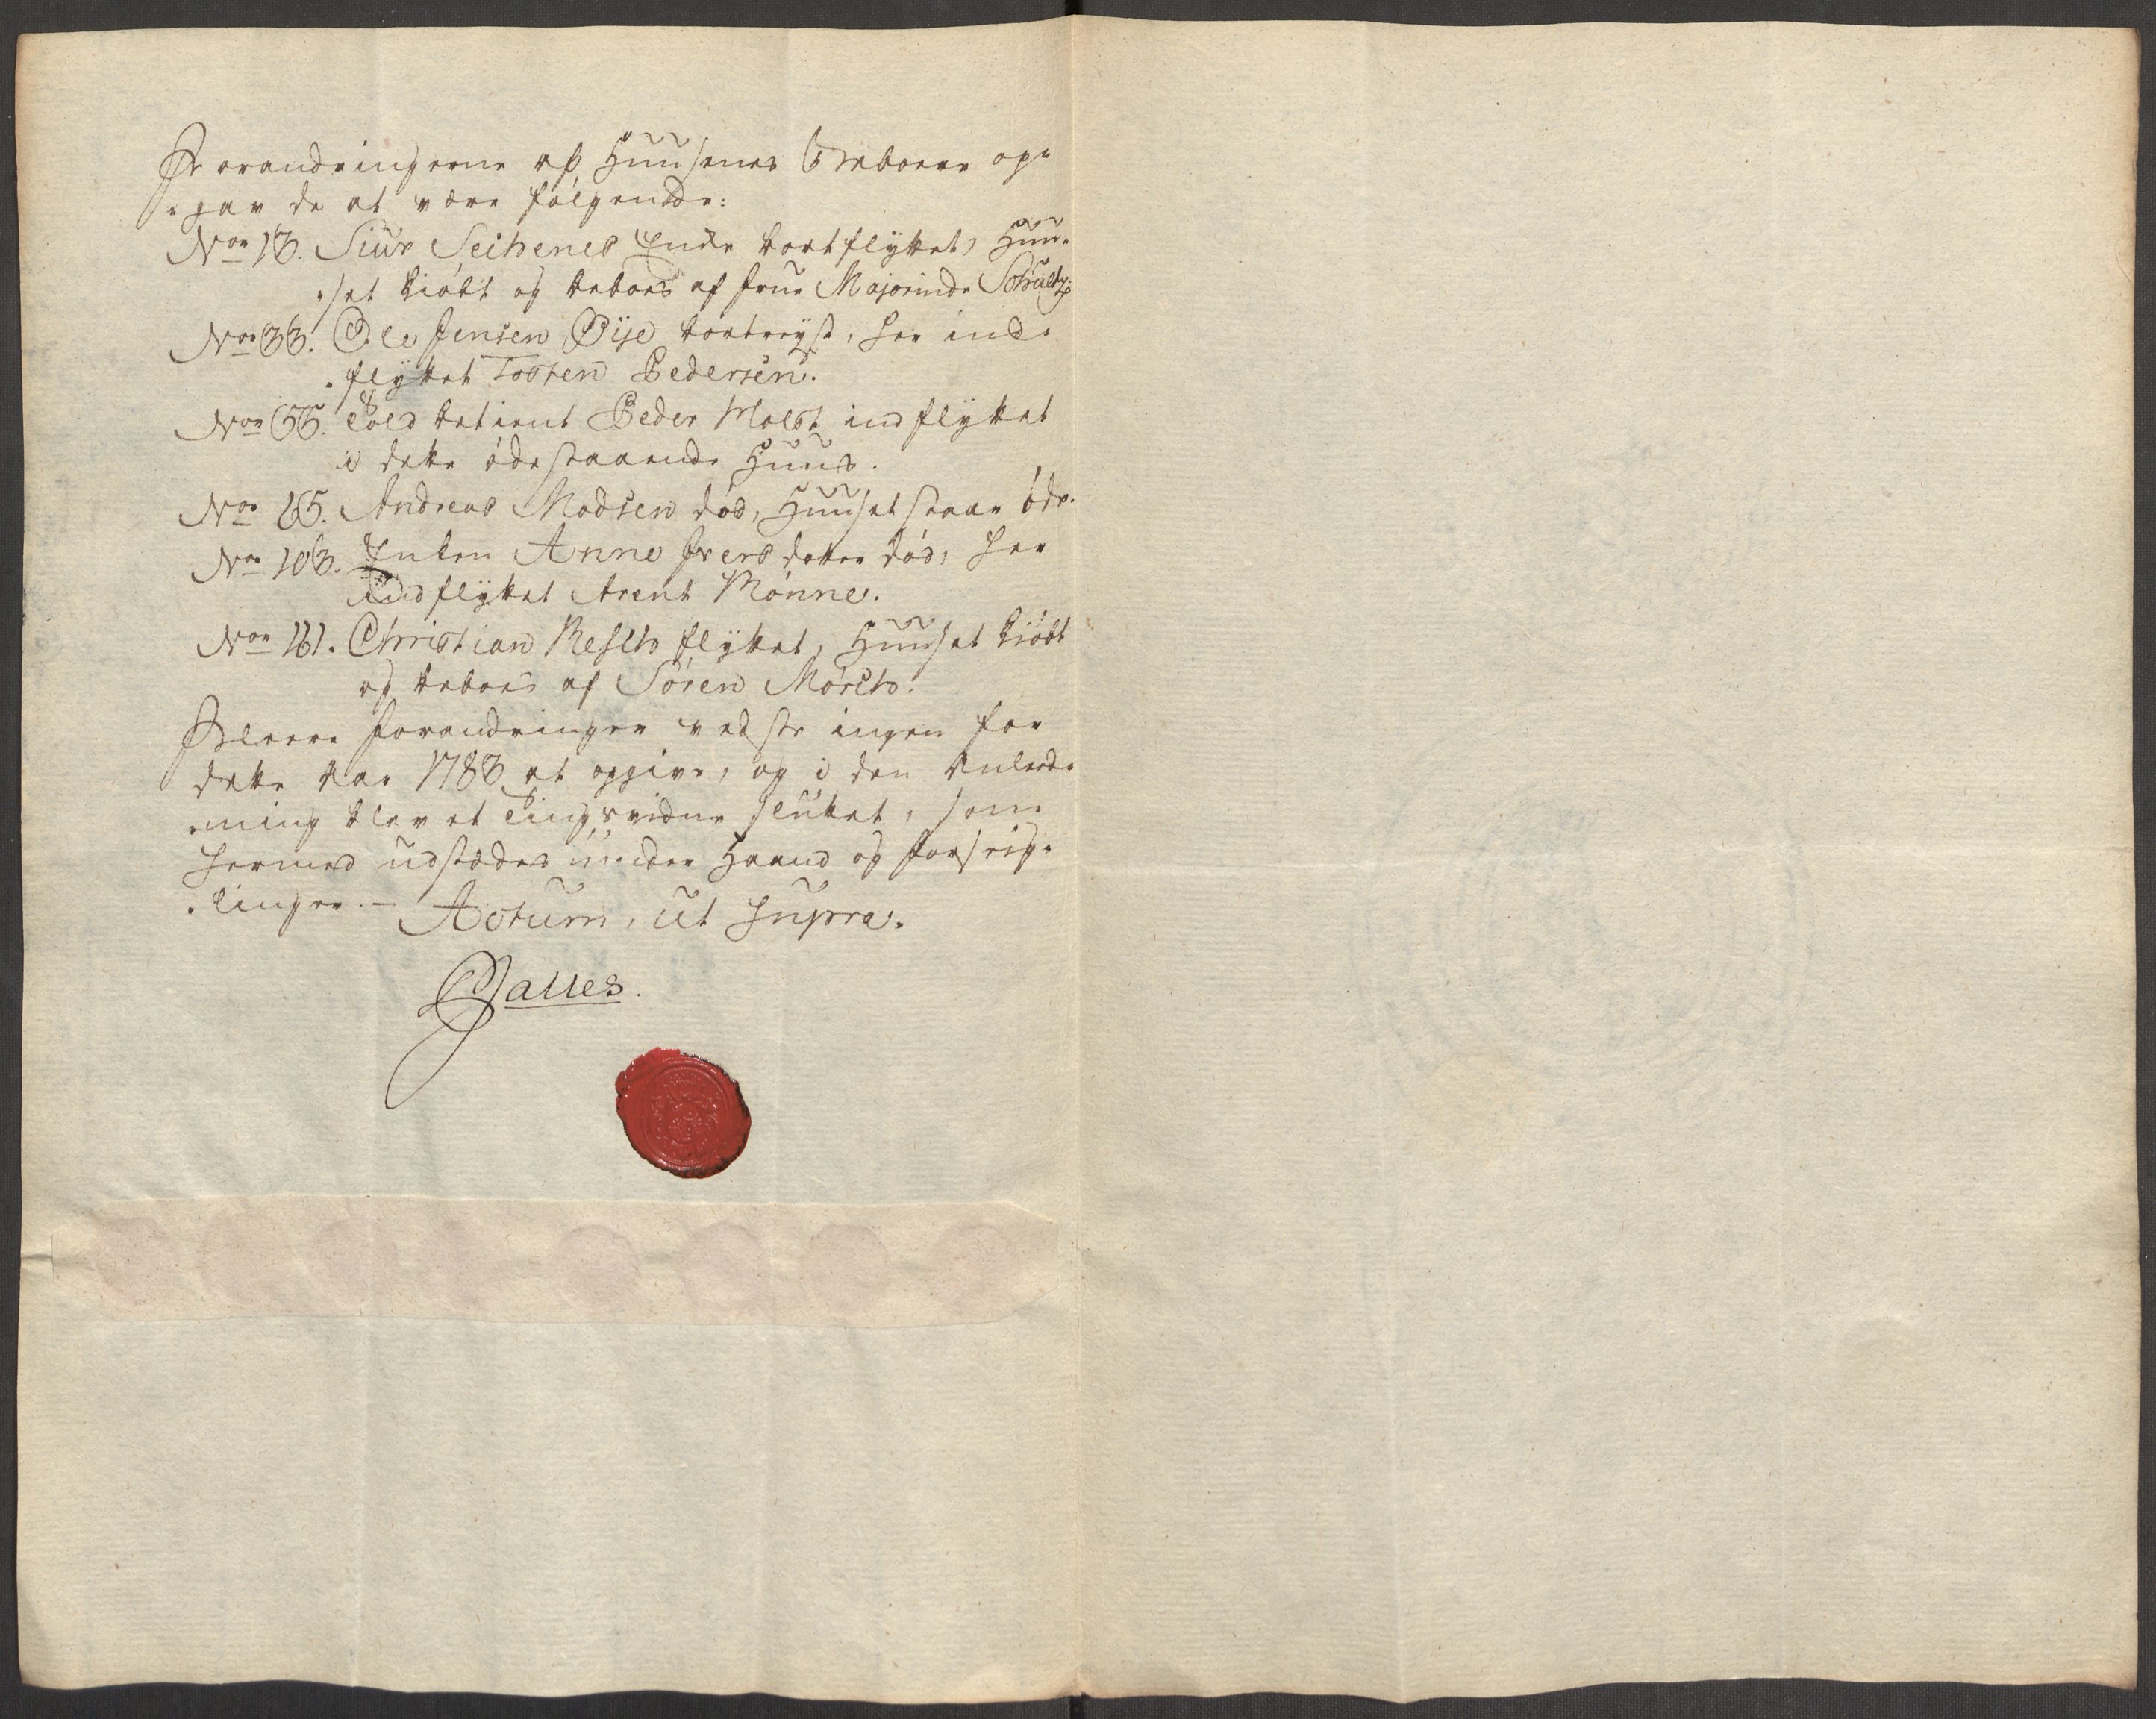 Forandringerne af Huusenes Beboere op-
-gav de at være følgende:
Nor 13. Siur Seihenes Enke bortflyttet, Huu-
-set kiöbt og beboes af Frue Majorinde Schultz
Nor 33. Ole Jensen Öÿe bortreyst, her ind-
-flyttet Tosten Pedersen.
Nor 55. Told betient Peder Molst indflyttet
i dette ödestaaende Huus.
Nor 65. Andreas Madsen död, Huuset staar öde.
Nor 103. Enken Anne Iversdatter död, her
indflyttet Arent Mönne.
Nor 161. Christian Resch flyttet, Huuset kiöbt
og beboes af Sören Mörch.
Fleere forandringer vedste ingen for
dette Aar 1783 at opgive, og i den Anled-
-ning blev et Tingsvidne sluttet, som
hermed udstædes under Haand og forseig-
-linger. — Actum, ut Supra.
Galles.